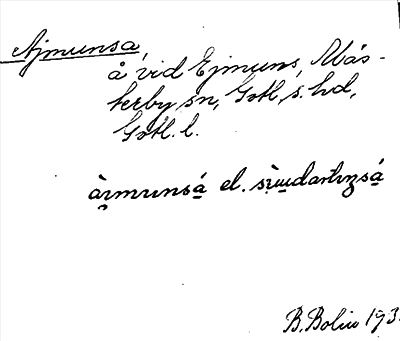 Ajmunsa,
å vid Ejmuns, Mäs-
terby sn, Gotl. s. hd,
Gotl. l.
àımunsá el. sùudarbzsá
B. Bolin 193